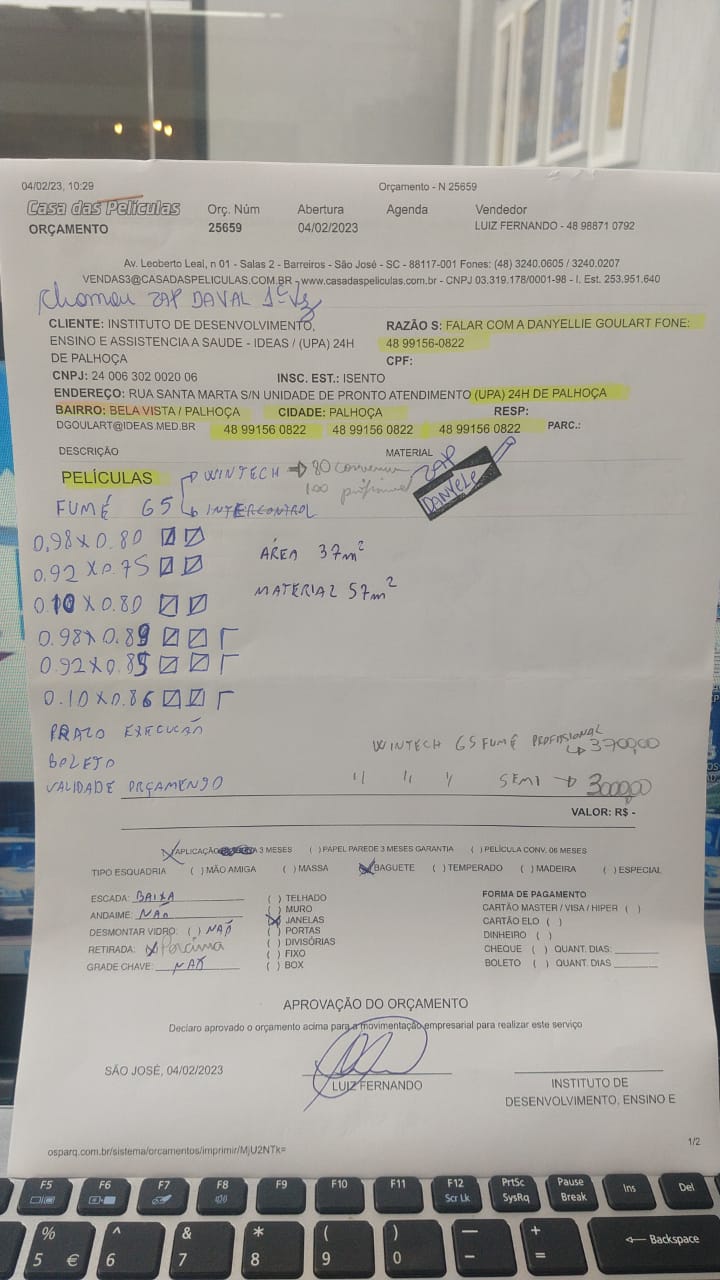 04/02/23, 10:29 Orçamento - N 25659
Casa das Películas Orç. Núm Abertura Agenda Vendedor
ORÇAMENTO 25659 04/02/2023 LUIZ FERNANDO - 48 98871 0792
Av. Leoberto Leal, n 01 - Salas 2 - Barreiros - São José - SC - 88117-001 Fones: (48) 3240.0605 / 3240.0207
VENDAS3@CASADASPELICULAS.COM.BR - www.casadaspeliculas.com.br - CNPJ 03.319.178/0001-98 - I. Est. 253.951.640
chamou ZAP DAVAL 1ª Vez
CLIENTE: INSTITUTO DE DESENVOLVIMENTO, RAZÃO S: FALAR COM A DANYELLIE GOULART FONE:
ENSINO E ASSISTENCIA A SAUDE - IDEAS / (UPA) 24H 48 99156-0822
DE PALHOÇA CPF:
CNPJ: 24 006 302 0020 06 INSC. EST.: ISENTO
ENDEREÇO: RUA SANTA MARTA S/N UNIDADE DE PRONTO ATENDIMENTO (UPA) 24H DE PALHOÇA
BAIRRO: BELA VISTA / PALHOÇA CIDADE: PALHOÇA RESP:
DGOULART@IDEAS.MED.BR 48 99156 0822 48 99156 0822 48 99156 0822 PARC.:
DESCRIÇÃO MATERIAL
PELÍCULAS WINTECH 80 ZAP
100 DANYELE
FUMÊ G5 INTERCONTROL
0,98 x 0.80
0.92 x 0.75 ÁREA 37m²
0.10 x 0.80 MATERIAL 57m²
0.98 x 0.89
0.92 x 0.85
0.10 x 0.86
PRAZO EXECUÇÃO
BOLETO WINTECH G5 FUMÊ PROFISSIONAL 3700,00
VALIDADE ORÇAMENTO " " " SEMI 3000,00
VALOR: R$ -
APLICAÇÃO 3 MESES ( ) PAPEL PAREDE 3 MESES GARANTIA ( ) PELÍCULA CONV. 06 MESES
TIPO ESQUADRIA ( ) MÃO AMIGA ( ) MASSA (X) BAGUETE ( ) TEMPERADO ( ) MADEIRA ( ) ESPECIAL
ESCADA: BAIXA ( ) TELHADO FORMA DE PAGAMENTO
ANDAIME: NÃO ( ) MURO CARTÃO MASTER / VISA / HIPER ( )
DESMONTAR VIDRO: ( ) NÃO (X) JANELAS CARTÃO ELO ( )
RETIRADA: (X) Porcima ( ) PORTAS DINHEIRO ( )
GRADE CHAVE: NÃO ( ) DIVISÓRIAS CHEQUE ( ) QUANT. DIAS:
( ) FIXO BOLETO ( ) QUANT. DIAS
( ) BOX
APROVAÇÃO DO ORÇAMENTO
Declaro aprovado o orçamento acima para a movimentação empresarial para realizar este serviço
SÃO JOSÉ, 04/02/2023 LUIZ FERNANDO INSTITUTO DE
DESENVOLVIMENTO, ENSINO E
osparq.com.br/sistema/orcamentos/imprimir/MjU2NTk= 1/2
F5 F6 F7 F8 F9 F10 F11 F12 Scr Lk PrtSc SysRq Pause Break Ins Del
% 5 € ^ 6 & 7 * 8 ( 9 ) 0 — - + = Backspace